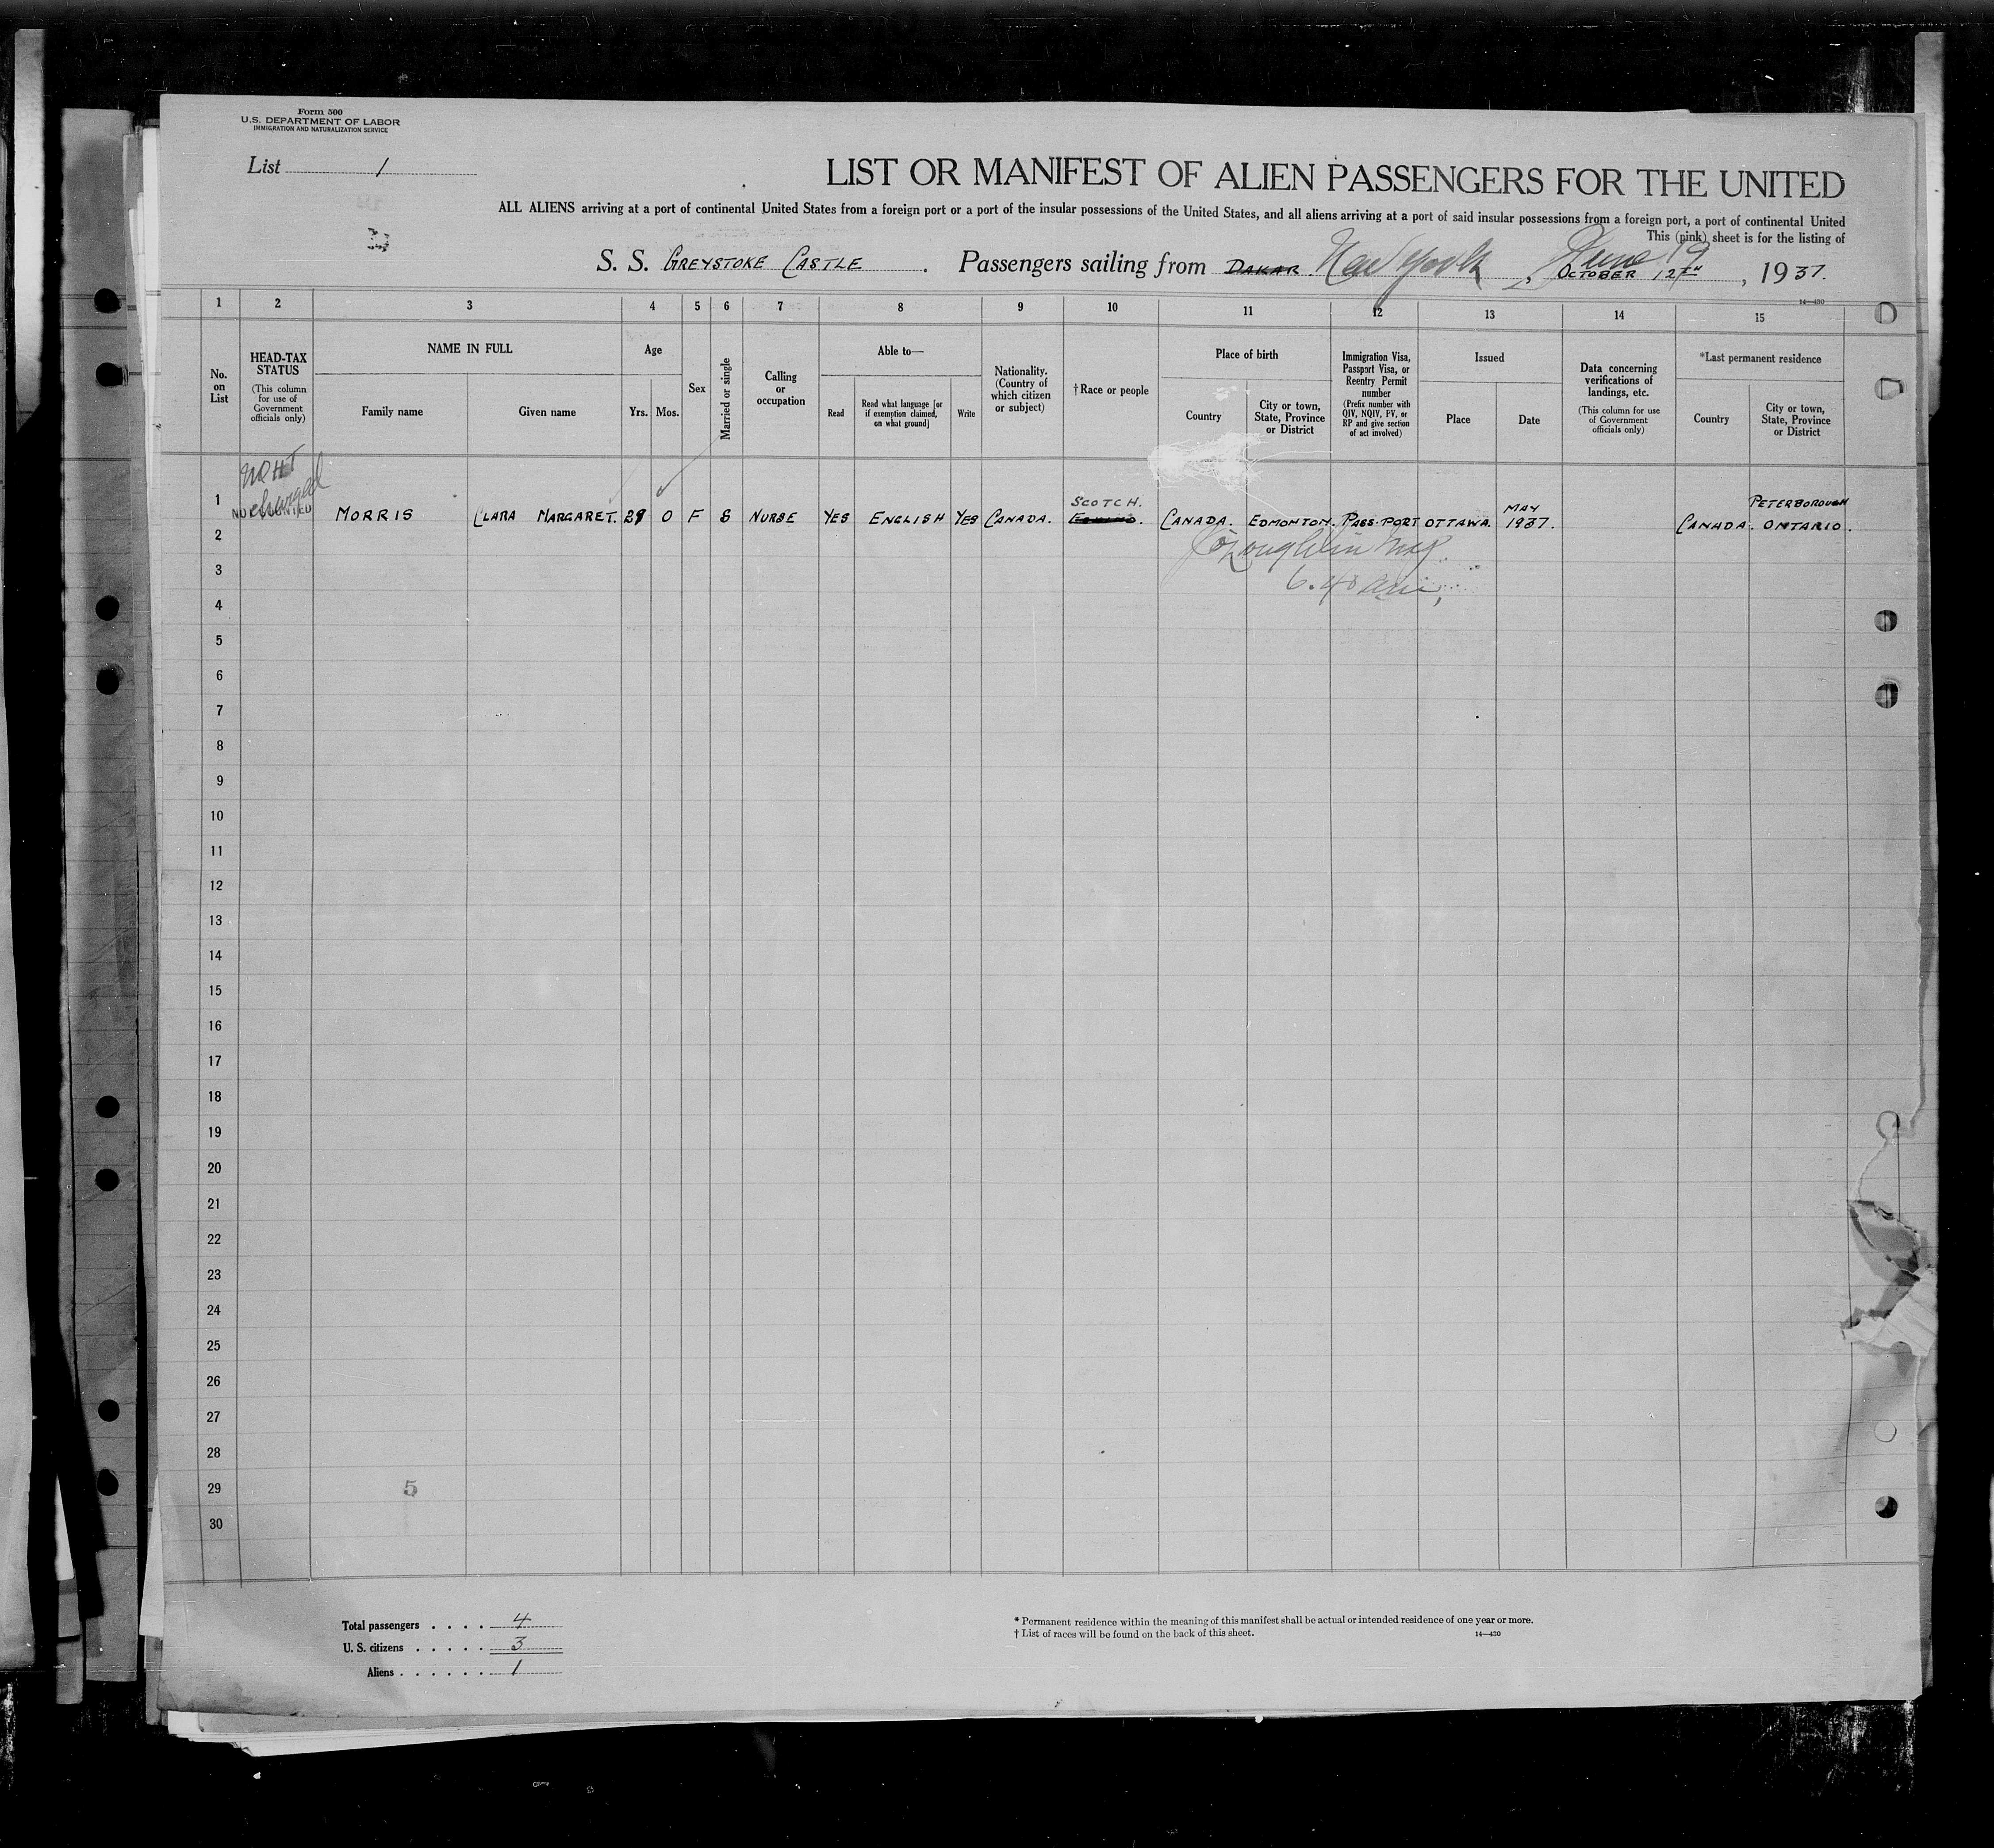 Form 500
U.S. DEPARTMENT OF LABOR
IMMIGRATION AND NATURALIZATION SERVICE
List 1
LIST OR MANIFEST OF ALIEN PASSENGERS FOR THE UNITED
ALL ALIENS arriving at a port of continental United States from a foreign port or a port of the insular possessions of the United States, and all aliens arriving at a port of said insular possessions from a foreign port, a port of continental United
This (pink) sheet is for the listing of
S. S. GREYSTOKE CASTLE. Passengers sailing from DAKAR New York, June 19 OCTOBER 12TH, 1937.
14—430
1 2 3 4 5 6 7 8 9 10 11 12 13 14 15
No. on List
HEAD-TAX STATUS
(This column for use of Government officials only)
NAME IN FULL
Family name
Given name
Age
Yrs. Mos.
Sex
Married or single
Calling or occupation
Able to—
Read
Read what language [or if exemption claimed, on what ground]
Write
Nationality. (Country of which citizen or subject)
† Race or people
Place of birth
Country
City or town, State, Province or District
Immigration Visa, Passport Visa, or Reentry Permit number
(Prefix number with QIV, NQIV, PV, or RP and give section of act involved)
Issued
Place
Date
Data concerning verifications of landings, etc.
(This column for use of Government officials only)
*Last permanent residence
Country
City or town, State, Province or District
charged
1 MORRIS CLARA MARGARET. 29 0 F S NURSE YES ENGLISH YES CANADA. SCOTCH. CANADA. EDMONTON. PASS-PORT OTTAWA. MAY 1937. CANADA. PETERBOROUGH ONTARIO.
2
3
6.40 am,
4
5
6
7
8
9
10
11
12
13
14
15
16
17
18
19
20
21
22
23
24
25
26
27
28
29
5
30
Total passengers . . . . 4
U. S. citizens . . . . . 3
Aliens . . . . . . 1
* Permanent residence within the meaning of this manifest shall be actual or intended residence of one year or more.
† List of races will be found on the back of this sheet.
14—430